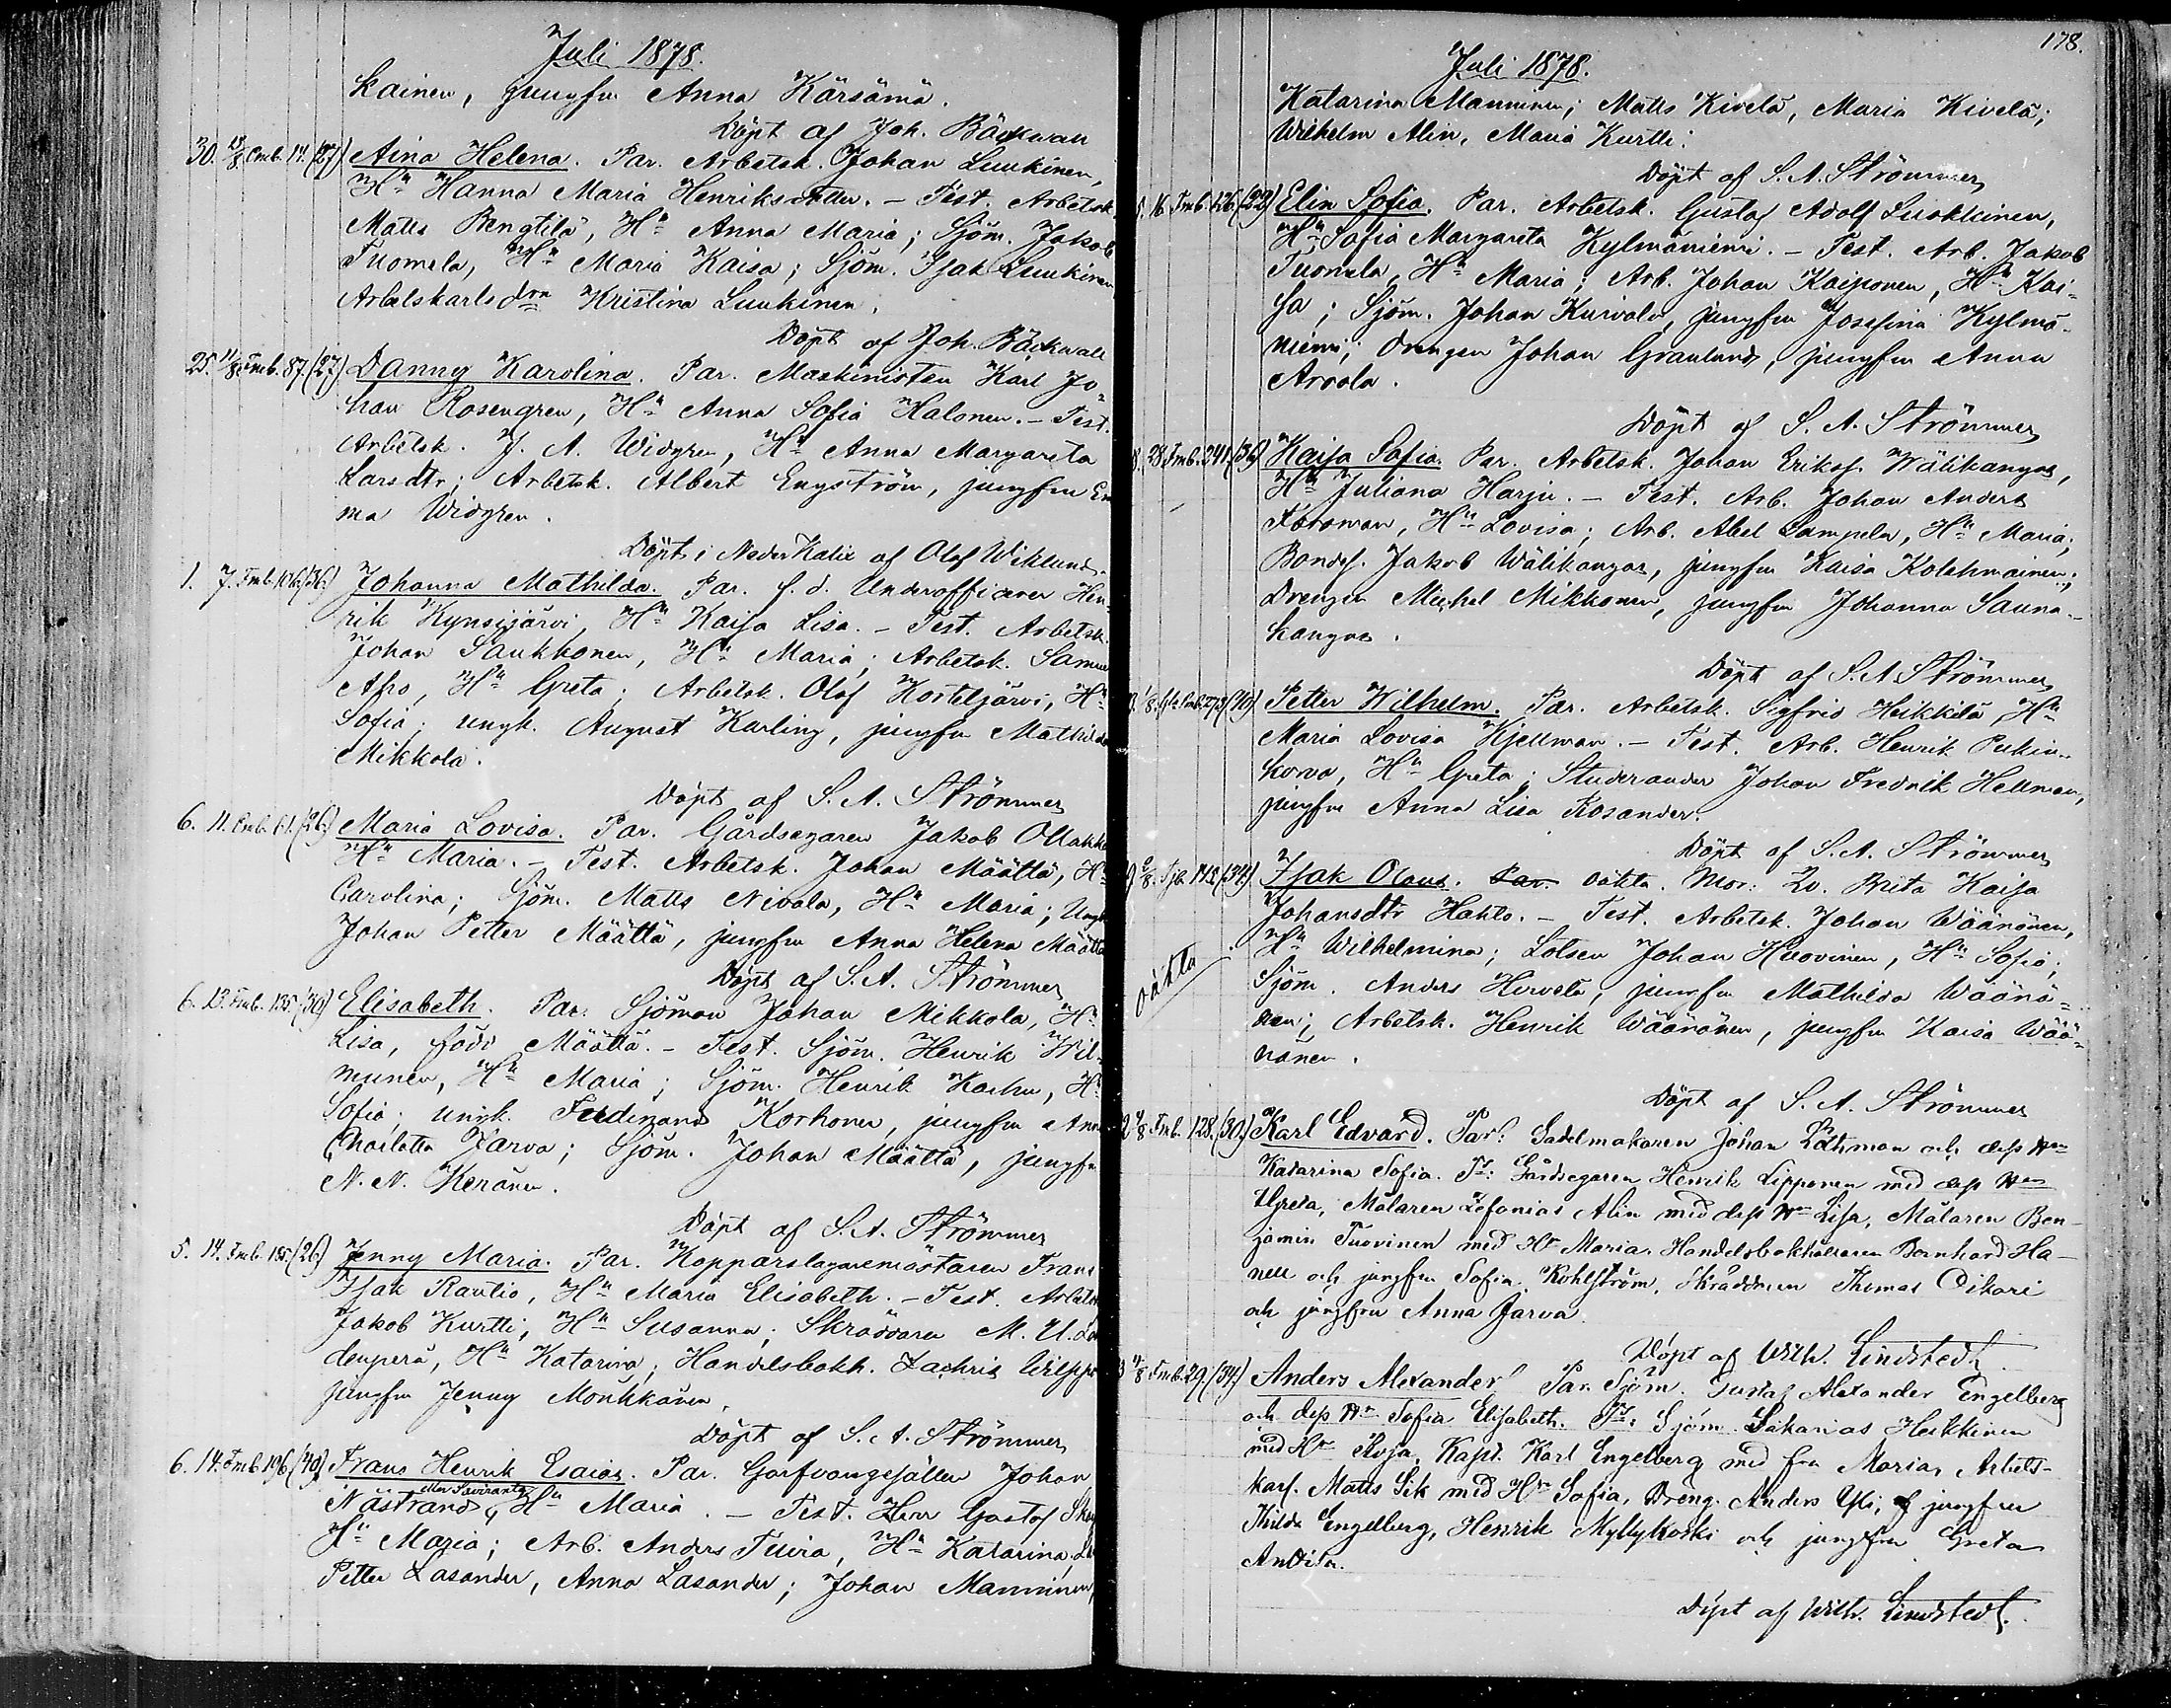 Juli 1878.
kainen, jungfru Anna Kärsämä.
Döpt af Joh. Bäckwall
30. 18/8. Omb. 14. (27) Aina Helena. Par. Arbetsk. Johan Luukinen,
Hu Hanna Maria Henriksdotter. - Test. Arbetsk.
Matts Bengtilä, Hu Anna Maria; Sjöm. Jakob
Tuomela, Hu Maria Kaisa; Sjöm. Isak Luukinen
Arbetskarls dra Kristina Luukinen.
Döpt af Joh. Bäckwall
25. 11/8. Fmb. 87. (27) Danny Karolina. Par. Maskinisten Karl Jo-
han Rosengren, Hu Anna Sofia Halonen. - Test.
Arbetsk. J. A. Widgren, Hu Anna Margareta
Larsdtr; Arbetsk. Albert Engström, jungfru Em
ma Widgren.
Döpt i Neder Kalix af Olof Wiklund.
1. 7. Fmb. (36) Johanna Mathilda. Par. f.d. Underofficeren Hen-
rik Kynsijärvi, Hu Kaisa Lisa. - Test. Arbetsk.
Johan Saukkonen, Hu Maria; Arbetsk. Samuel
Aho, Hu Greta; Arbetsk. Olof Korteljärvi, Hu
Sofia; yngk. August Karling, jungfru Mathilda
Mikkola.
Döpt af S. A. Strömmer
6. 11. Omb. 61. (26) Maria Lovisa. Par. Gårdsegaren Jakob Ollakka
Hu Maria. - Test. Arbetsk. Johan Määttä, Hu
Carolina; Sjöm. Matts Nivala, Hu Maria; Yngk.
Johan Petter Määttä, jungfru Anna Helena Määttä
Döpt af S. A. Strömmer
6. 13. Fmb. 135. (30) Elisabeth. Par. Sjöman Johan Mikkola, Hu
Lisa, född Määttä. - Test. Sjöm. Henrik Wil-
munen, Hu Maria; Sjöm. Henrik Karhu, Hu
Sofia; yngk. Ferdinand Korhonen, jungfru Anna
Charlotta Jarva; Sjöm. Johan Määttä, jungfru
N. N. Keränen.
Döpt af S. A. Strömmer
5. 14. Fmb. 155 (26) Jenny Maria. Par. Kopparslagaremästaren Frans
Isak Rautio, Hu Maria Elisabeth. - Test. Arbetsk
Jakob Kurtti, Hu Susanna; Skräddaren M. U. La
denperä, Hu Katarina; Handelsbokh. Zachris Wilppo
jungfru Jenny Moukkanen.
Döpt af S. A. Strömmer
6. 14. Fmb. 196 (40) Frans Henrik Esaias. Par. Garfvaregesällen Johan
Nästrand, Hu Maria. - Test. Herr Gustaf
Hu Maria; Arb. Anders Tuira, Hu Katarina;
Petter Lasander, Anna Lasander; Johan Manninen,
178.
Juli 1878.
Katarina Manninen; Matts Kivelä, Maria Kivelä;
Wilhelm Alin, Maria Kurtti.
Döpt af S. A. Strömmer
5. 16. Fmb. 126. (22) Elin Sofia. Par. Arbetsk. Gustaf Adolf Luokkinen,
Hu Sofia Margareta Kylmäniemi. - Test. Arb. Jakob
Tuomela, Hu Maria; Arb. Johan Kaiponen, Hu Kai-
sa; Sjöm. Johan Kuivala, jungfru Josefina Kylmä-
niemi; Drengen Johan Granlund, jungfru Anna
Arvola.
Döpt af S. A. Strömmer
8. 28. Fmb. 241 (36) Kaisa Sofia. Par. Arbetsk. Johan Eriksf. Wälikangas,
Hu Juliana Harju. - Test. Arb. Johan Anders
Forsman, Hu Lovisa; Arb. Abel Lampela, Hu Maria;
Bondes. Jakob Wälikangas, jungfru Kaisa Kolehmainen;
Drengen Michel Mikkonen, jungfru Johanna Sauna-
kangas.
Döpt af S. A. Strömmer
1/8. (40) Petter Wilhelm. Par. Arbetsk. Sigfrid Heikkilä, Hu
Maria Lovisa Kjellman. - Test. Arb. Henrik Pukin-
korva, Hu Greta; Studeranden Johan Fredrik Hellman,
jungfru Anna Lisa Rosander.
Döpt af S. A. Strömmer
(34) Isak Olaus. Par. oäkta. Mor: Ln. Brita Kaisa
Johansdtr Hahto. - Test. Arbetsk. Johan Wäänänen,
Hu Wilhelmina; Lotsen Johan Huovinen, Hu Sofia;
oäkta
Sjöm. Anders Hirvelä, jungfru Mathilda Wäänä-
nen; Arbetsk. Henrik Wäänänen, jungfru Kaisa Wää-
nänen.
Döpt af S. A. Strömmer
4/8 Fmb. 128. (30) Karl Edvard. Par: Sadelmakaren Johan Råthman och dess Hu
Katarina Sofia. Tr: Gårdsegaren Henrik Lipponen med dess Hu
Greta, Målaren Zefanias Alin med dess Hu Lisa, Målaren Ben-
jamin Tuovinen med Hu Maria, Handelsbokhållaren Bernhard Ha-
nell och jungfru Sofia Kohlström, Skräddaren Thomas Oikari
och jungfru Anna Jarva.
Döpt af Wilh. Lindstedt.
4/8. Fmb. 29. (34) Anders Alexander Par. Sjöm. Gustaf Alexander Engelberg
och dess Hu Sofia Elisabeth. Tr: Sjöm. Sakarias Heikkinen
med Hu Eva, Kapt. Karl Engelberg med fru Maria, Arbets-
karl. Matts Sik med Hu Sofia, Dreng. Anders Yli, jungfru
Hilda Engelberg, Henrik Myllykoski och jungfru Greta
Antila.
Döpt af Wilh. Lindstedt.